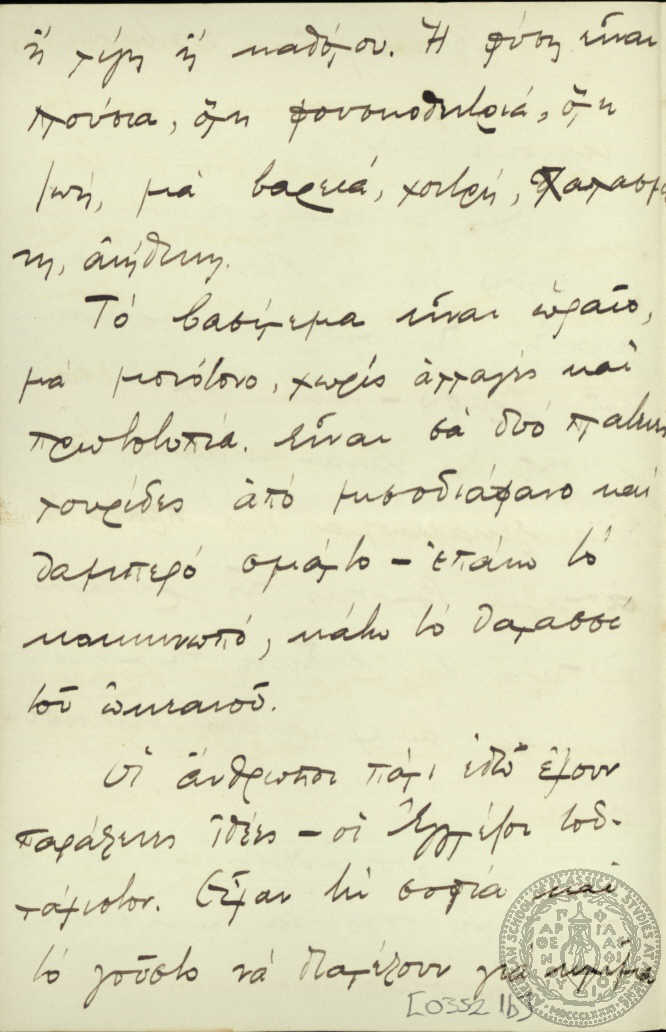 ἢ λίγη ἢ καθόλου. Ἡ φύση εἶναι
πλούσια, ὄχι φουσκοθεωριά, ὄχι
ζωή, μιὰ βαρειά, χοντρή,
νη, ἀνήθικη.
Τὸ βασίλεμα εἶναι ὡραῖο,
μὰ μονότονο, χωρὶς ἀλλαγὲς καὶ
πρωτοτυπία. Εἶναι σὰ δυὸ πλατειὲς
λουρίδες ἀπὸ μισοδιάφανο καὶ
θαμπερό σμάλτο – ἐπάνω τὸ
κοκκινωπό, κάτω τὸ θαλασσὶ
τοῦ ὠκεανοῦ.
Οἱ ἄνθρωποι πάλι ἐδῶ ἔχουν
παράξενες ἰδέες – οἱ Ἐγγλέζοι τοὐ-
λάχιστον. Εἶχαν τὴ σοφία καὶ
τὸ γοῦστο νὰ διαλέξουν γιὰ
[0352 1b]